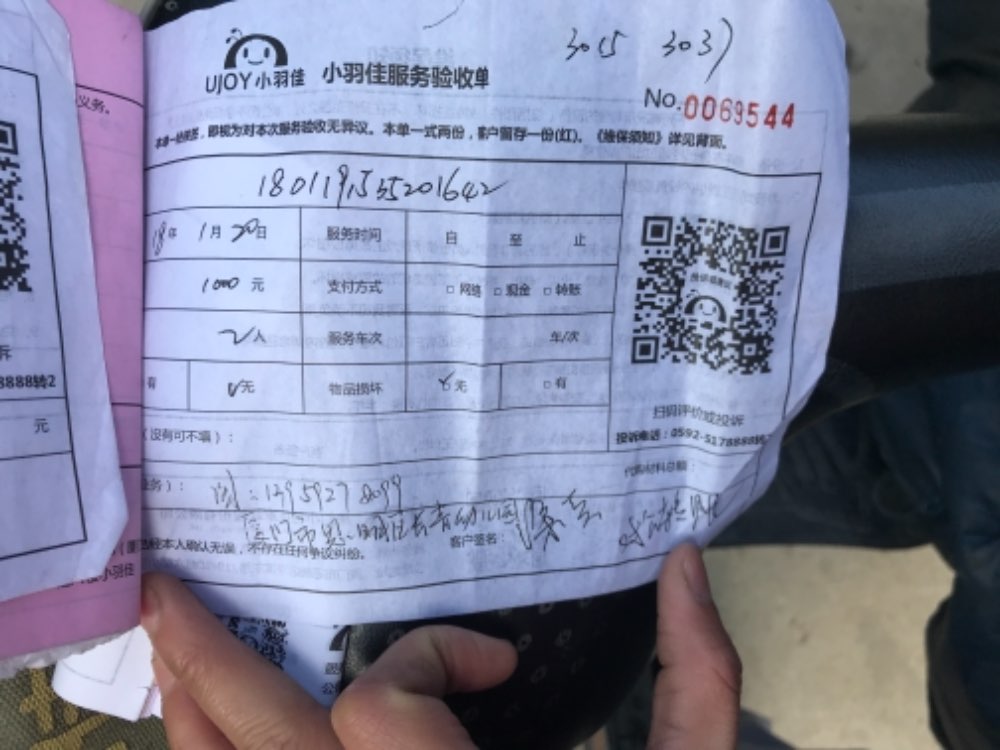 3015 3037
UJOY小羽佳 小羽佳服务验收单
No.0069544
即视为对本次服务验收无异议。本单一式两份，客户留存一份(红)。《维保须知》详见背面。
义务。
1801191555201642
18年 1月20日 服务时间 自 至 止
1000元 支付方式 □网络 □现金 □转账
2人 服务车次 年/次
有 √无 物品损坏 √无 □有
扫码评价或投诉
投诉电话：0592-5178888转2
诉
8888转2
元
(没有可不填)：
代购材料总额：
业务)：
经本人确认无误，不存在任何争议纠纷。
客户签名：
小羽佳